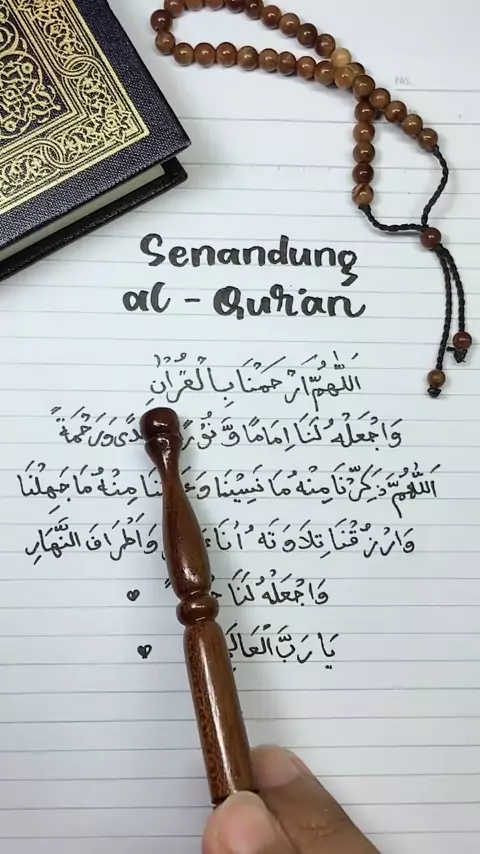 Senandung
al - Qur'an
اَللّٰهُمَّ ارْحَمْنَا بِالْقُرْاٰنِ
وَاجْعَلْهُ لَنَا اِمَامًا وَّ وَرَحْمَةً
اَللّٰهُمَّ ذَكِّرْنَا مِنْهُ مَا نَسِيْنَا مِنْهُ مَا جَهِلْنَا
وَارْزُقْنَا تِلَاوَتَهُ وَاَطْرَافَ النَّهَارِ
وَاجْعَلْهُ لَنَا
يَا رَبَّ
No.